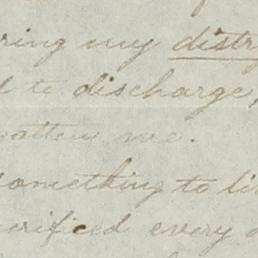 ring my distr
to discharge,
gotten me.
something to li
crificed every